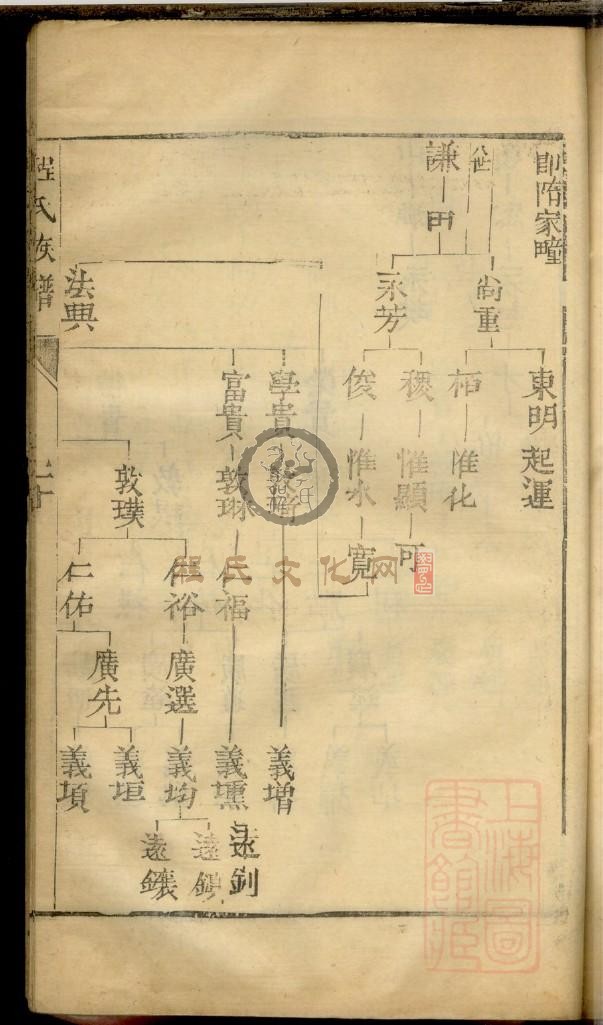 即隋家疃
世
謙
田
尚重
永芳
東明
起運
栢
惟化
稷
惟顯
可
俊
惟水
寛
法典
學貴
富貴
敦琳
敦璞
仁福
仁裕
仁佑
廣選
廣先
義增
義壎
義均
義垣
義項
遠釗
遠鑲
程氏族譜
程氏文化网
上海圖書館藏